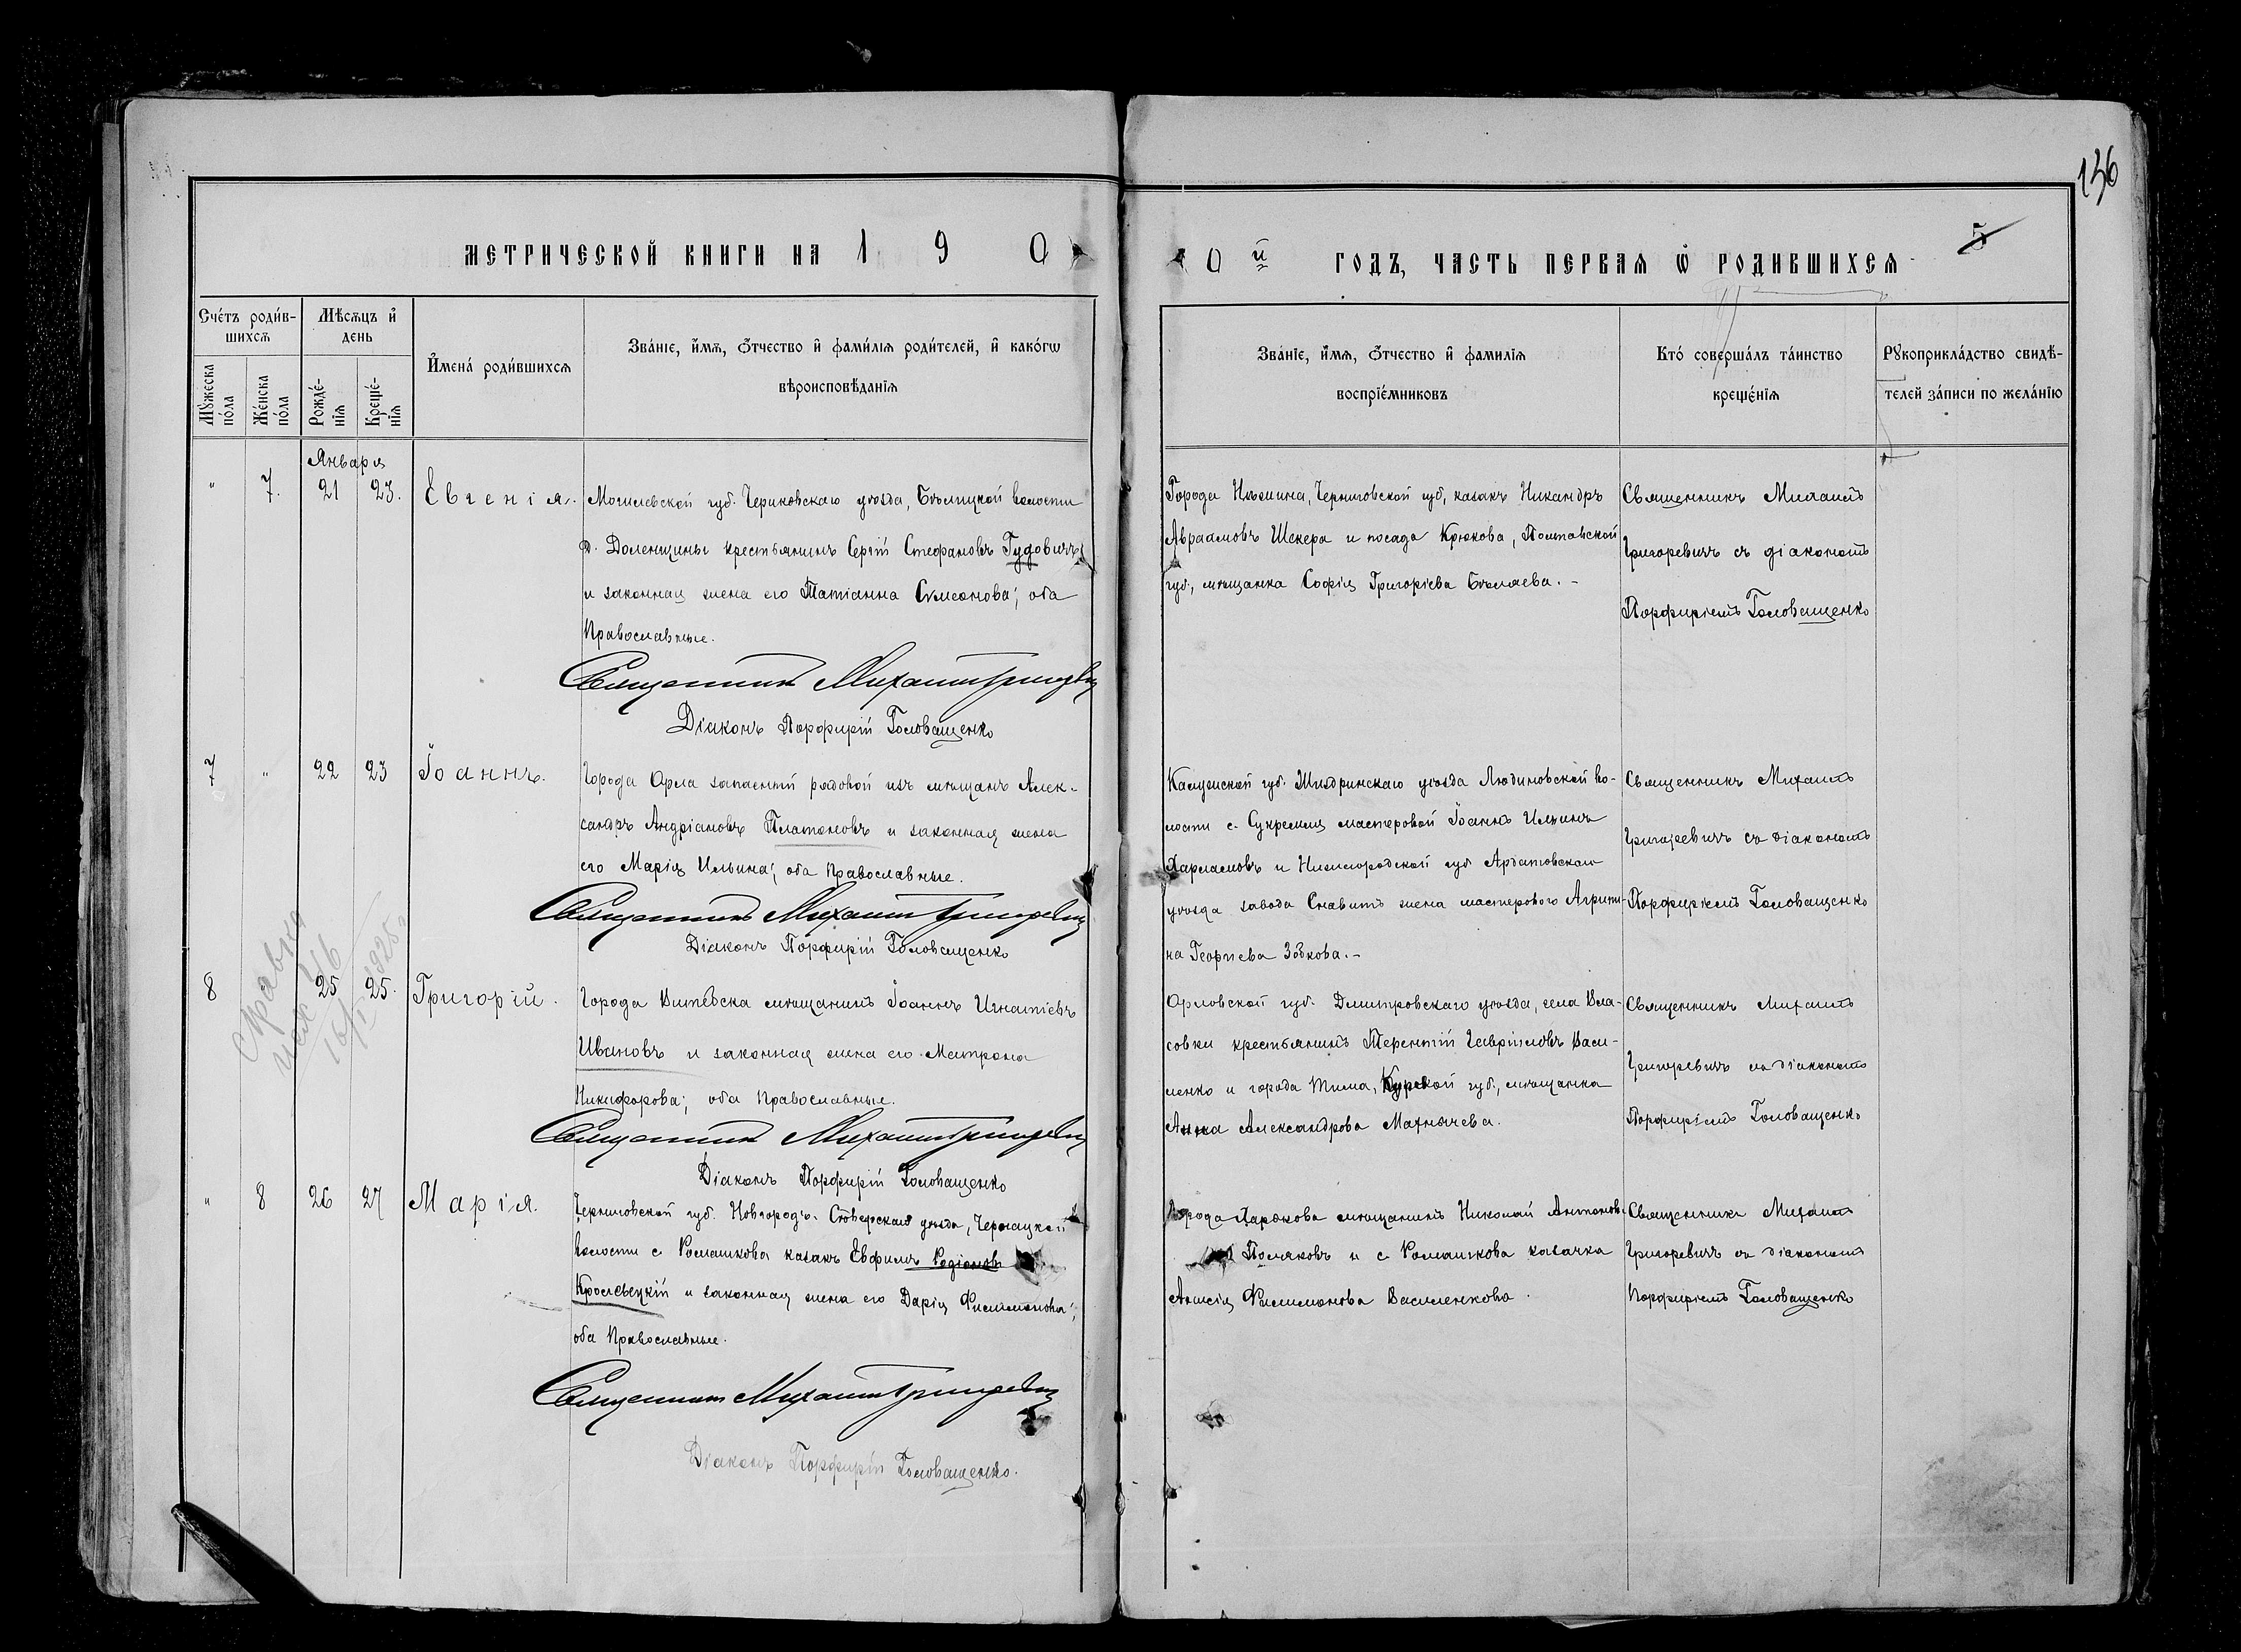 136
МЕТРИЧЕСКОЙ КНИГИ НА 1 9 0
0й ГОДЪ, ЧАСТЬ ПЕРВАЯ Ѡ РОДИВШИХСЯ
5
Сче́тъ роди́в-
шихсѧ
Мѣсѧцъ и҆
день
И҆мена́ роди́вшихсѧ
Зва́нїе, и҆́мѧ, ѻ҆́тчество и҆ фами́лїѧ роди́телей, и҆ како́гѡ
вѣроисповѣ́данїѧ
Мꙋ́жеска
по́ла
Же́нска
по́ла
Рожде́-
нїѧ
Креще́-
нїѧ
Зва́нїе, и҆́мѧ, ѻ҆́тчество и҆ фами́лїѧ
воспрїе́мниковъ
Кто̀ соверша́лъ та́инство
креще́нїѧ
Рꙋкоприкла́дство свидѣ́-
телей за́писи по жела́нїю
Января
" 7. 21 23. Евгенія.
Могилевской губ. Чериковскаго уѣзда, Бѣлицкой волости
д. Доленщины крестьянинъ Сергій Стефановъ Гудовичъ
и законная жена его Татіанна Симеонова; оба
Православные.
Священникъ Михаилъ Григоревичъ
Діаконъ Порфирій Головащенко
Города Нѣжина, Черниговской губ., казакъ Никандръ
Авраамовъ Шекера и посада Крюкова, Полтавской
губ., мѣщанка Софія Григоріева Бѣляева. -
Священникъ Михаилъ
Григоревичъ съ діакономъ
Порфиріемъ Головащенко
7 " 22 23 Іоаннъ.
Города Орла запасный рядовой изъ мѣщанъ Алек-
сандръ Андріановъ Платоновъ и законная жена
его Марія Ильина; оба Православные.
Священникъ Михаилъ Григоревичъ
Діаконъ Порфирій Головащенко
Калужской губ. Жиздринскаго уѣзда Людиновской во-
лости с. Сукремля мастеровой Іоаннъ Ильинъ
Харламовъ и Нижегородской губ. Ардатовскаго
уѣзда завода жена мастерового Агрипи-
на Георгіева Зобкова. -
Священникъ Михаилъ
Григоревичъ съ діакономъ
Порфиріемъ Головащенко
Справка
исх. 46
1925 г
8 " 25 25. Григорій.
Города Витебска мѣщанинъ Іоаннъ Игнатіевъ
Ивановъ и законная жена его Матрона
Никифорова; оба Православные.
Священникъ Михаилъ Григоревичъ
Діаконъ Порфирій Головащенко
Орловской губ. Дмитровскаго уѣзда, села Вла-
совки крестьянинъ Терентій Гавріиловъ Васи-
ленко и города Тима, Курской губ., мѣщанка
Анна Александрова Махнычева.
Священникъ Михаилъ
Григоревичъ съ діакономъ
Порфиріемъ Головащенко
" 8 26 27 Марія.
Черниговской губ. Новгородъ-Сѣверскаго уѣзда, Чернацкой
волости с. Ромашкова казакъ Евфимъ Родіоновъ
Кролевецкій и законная жена его Дарія Филимонова;
оба Православные.
Священникъ Михаилъ Григоревичъ
Діаконъ Порфирій Головащенко.
Города Харькова мѣщанинъ Николай Антонов
Поляковъ и с. Ромашкова казачка
Анисія Филимонова Василенкова.
Священникъ Михаилъ
Григоревичъ съ діакономъ
Порфиріемъ Головащенко